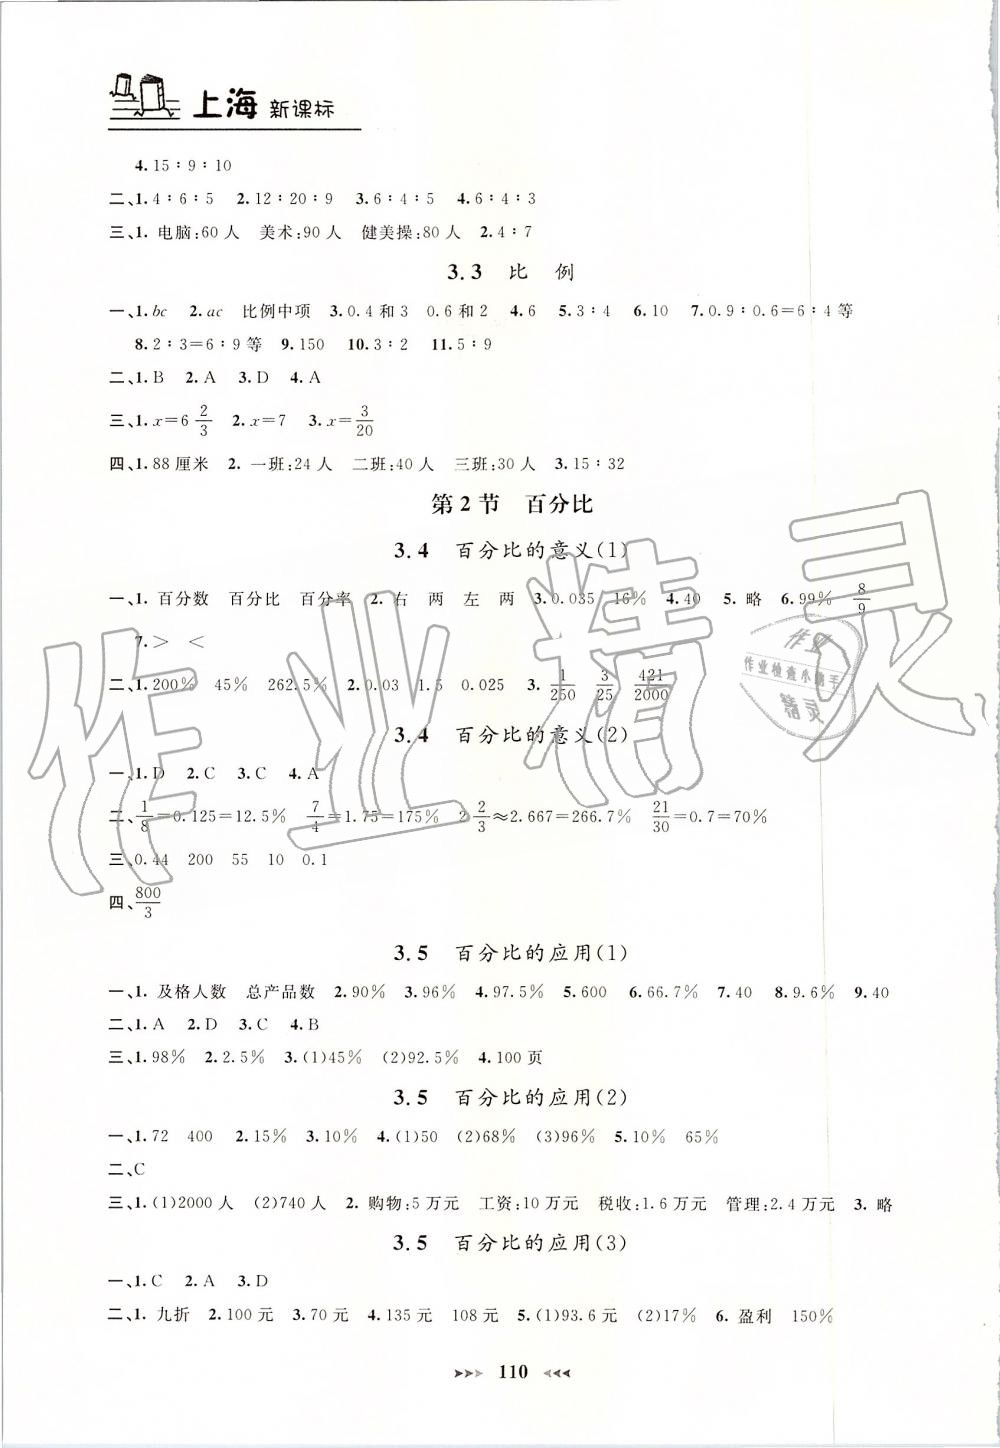 上海 新课标
4. 15∶9∶10
二、1. 4∶6∶5 2. 12∶20∶9 3. 6∶4∶5 4. 6∶4∶3
三、1. 电脑:60人 美术:90人 健美操:80人 2. 4∶7
3.3 比 例
一、1. bc 2. ac 比例中项 3. 0.4和3 0.6和2 4. 6 5. 3∶4 6. 10 7. 0.9∶0.6=6∶4等
8. 2∶3=6∶9等 9. 150 10. 3∶2 11. 5∶9
二、1. B 2. A 3. D 4. A
三、1. x=6 2/3 2. x=7 3. x=3/20
四、1. 88厘米 2. 一班:24人 二班:40人 三班:30人 3. 15∶32
第2节 百分比
3.4 百分比的意义(1)
一、1. 百分数 百分比 百分率 2. 右 两 左 两 3. 0.035 16% 4. 40 5. 略 6. 99% 8/9
7. > <
二、1. 200% 45% 262.5% 2. 0.03 1.5 0.025 3. 1/250 3/25 421/2000
3.4 百分比的意义(2)
一、1. D 2. C 3. C 4. A
二、1/8=0.125=12.5% 7/4=1.75=175% 2 2/3≈2.667=266.7% 21/30=0.7=70%
三、0.44 200 55 10 0.1
四、800/3
3.5 百分比的应用(1)
一、1. 及格人数 总产品数 2. 90% 3. 96% 4. 97.5% 5. 600 6. 66.7% 7. 40 8. 9.6% 9. 40
二、1. A 2. D 3. C 4. B
三、1. 98% 2. 2.5% 3. (1)45% (2)92.5% 4. 100页
3.5 百分比的应用(2)
一、1. 72 400 2. 15% 3. 10% 4. (1)50 (2)68% (3)96% 5. 10% 65%
二、C
三、1. (1)2000人 (2)740人 2. 购物:5万元 工资:10万元 税收:1.6万元 管理:2.4万元 3. 略
3.5 百分比的应用(3)
一、1. C 2. A 3. D
二、1. 九折 2. 100元 3. 70元 4. 135元 108元 5. (1)93.6元 (2)17% 6. 盈利 150%
110
作业精灵
作业
作业检查小帮手
精灵